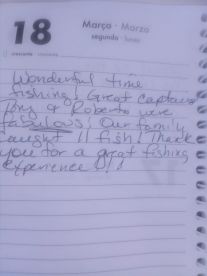 18
Março · Marzo
segunda · lunes
Wonderful time
fishing! Great captains
Tony & Roberto were
fabulous! Our family
caught 11 fish! Thank
you for a great fishing
experience!